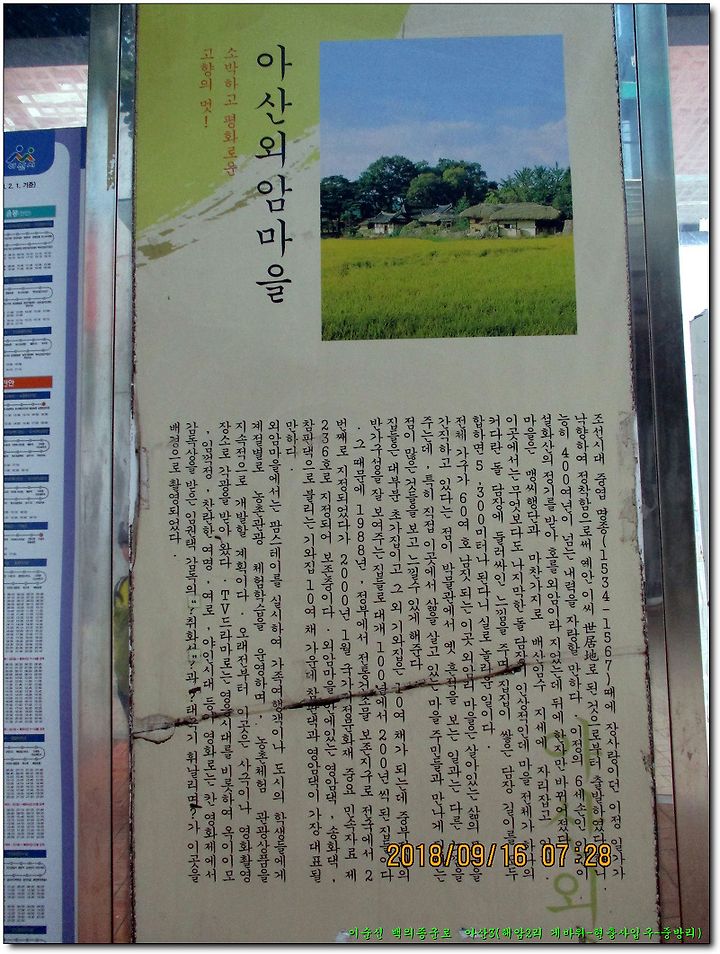 아산외암마을
소박하고 평화로운
고향의 멋!
조선시대 중엽 명종(1534-1567)때에 장사랑이던 이정 일가가
낙향하여 정착함으로써 예안 이씨 世居地로 된 것으로부터 출발하였다
능히 400여년이 넘는 내력을 자랑할 만하다 이정의 6세손인 이간이
설화산의 정기를 받아 호를 외암이라 지었는데 뒤에 한자만 바뀌어졌다
마을은 맹씨행단과 마찬가지로 배산임수 지세에 자리잡고 있
이곳에서는 무엇보다도 나지막한 돌 담장이 인상적인데 마을 전체가
커다란 돌 담장에 둘러싸인 느낌을 주며 집집이 쌓은 담장 길이를 모두
합하면 5,300미터나 된다니 실로 놀라운 일이다.
전체 가구가 60여 호 남짓 되는 이곳 외암리 마을은 살아있는 삶의
간직하고 있다는 점이 박물관에서 옛 흔적을 보는 일과는 다른
주는데, 특히 직접 이곳에서 삶을 살고 있는 마을 주민들과 만나게 되는
점이 많은것들을 보고 느낄수 있게 해준다
집들은 대부분 초가집이고 그 외 기와집은 10여 채가 되는데 중부
반가 구성을 잘 보여주는 집들로 대개 100년에서 200년씩 된 집들이다
. 그 때문에 1988년, 정부에서 전통건조물 보존지구로 전국에서 2
번째로 지정되었다가 2000년 1월 국가지정문화재 중요 민속자료 제
236호로 지정되어 보존중이다. 외암마을 안에있는 영암댁, 송화댁,
참판댁으로 불리는 기와집 10여 채 가운데 참판댁과 영암댁이 가장 대표될
만하다.
외암마을에서는 팜스테이를 실시하여 가족여행객이나 도시의 학생들에게
계절별로 농촌관광 체험학습을 운영하며, 농촌체험 관광상품을
지속적으로 개발할 계획이다. 오래전부터 이곳은 사극이나 영화촬영
장소로 각광을 받아 왔다. TV드라마로는 영웅시대를 비롯하여 옥이이모
, 임꺽정, 찬란한 여명, 여로, 야인시대 등이 영화로는 칸 영화제에서
감독상을 받은 임권택 감독의 "취화선"과 "태극기 휘날리며"가 이곳을
배경으로 촬영되었다.
아산시
2. 1. 기준)
천안
2018/09/16 07:28
이순신 백의종군로 아산3(해암2리 게바위-현충사입구-중방리)